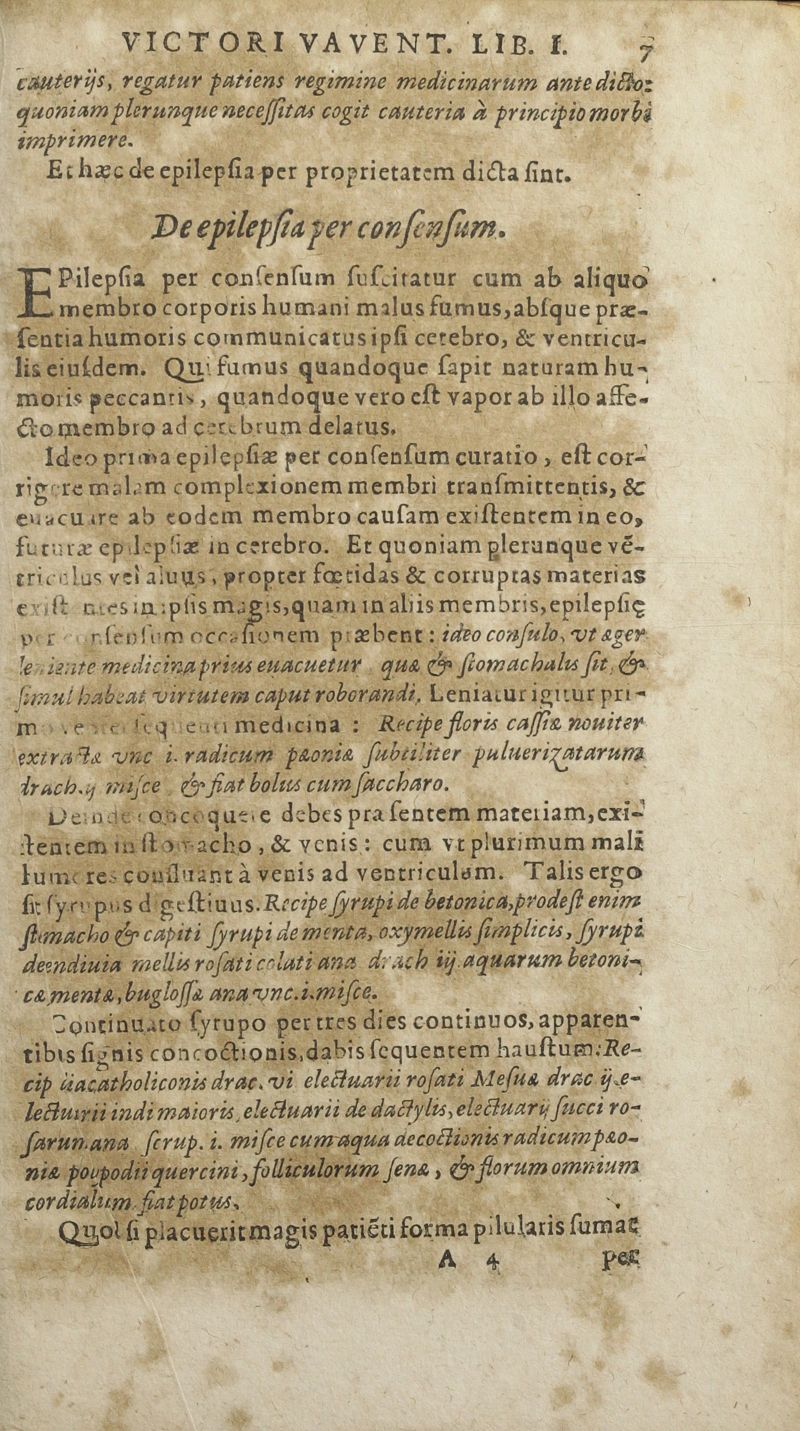 VICTORI VAVENT. LIB. I. 7
cauterijs, regatur patiens regimine medicinarum ante dicto:
quoniam plerunque necessitas cogit cauteria à principio morbi
imprimere.
Et hæc de epilepsia per proprietatem dicta sint.
De epilepsia per consensum.
EPilepsia per consensum suscitatur cum ab aliquo
membro corporis humani malus fumus, absque præ-
sentia humoris communicatus ipsi cerebro, & ventricu-
lis eiusdem. Qui fumus quandoque sapit naturam hu-
moris peccantis, quandoque vero est vapor ab illo affe-
cto membro ad cerebrum delatus.
Ideo prima epilepsiæ per consensum curatio, est cor-
rigere malam complexionem membri transmittentis, &
euacuare ab eodem membro causam existentem in eo,
futuræ epilepsiæ in cerebro. Et quoniam plerunque vē-
triculus vel aluus, propter fœtidas & corruptas materias
in ipsis magis, quam in aliis membris, epilepsię
occasionem præbent: ideo consulo, vt æger
leniente medicina prius euacuetur quæ & stomachalis sit, &
simul habeat virtutem caput roborandi. Leniatur igitur pri-
medicina: Recipe floris cassiæ nouiter
extractæ vnc i. radicum pæoniæ subtiliter puluerizatarum
drach. ij misce & fiat bolus cum saccharo.
Deinde concoquere debes præsentem materiam, exi-
stentem in stomacho, & venis: cum vt plurimum mali
humores confluant à venis ad ventriculum. Talis ergo
sit syrupus digestiuus. Recipe syrupi de betonica, prodest enim
stomacho & capiti syrupi de menta, oxymellis simplicis, syrupi
de endiuia mellis rosati colati ana drach iij. aquarum betoni-
cæ mentæ, buglossæ ana vnc. i. misce.
Continuato syrupo per tres dies continuos, apparen-
tibus signis concoctionis, dabis sequentem haustum: Re-
cip diacatholiconis drac. vi electuarii rosati Mesuæ drac ij. e-
lectuarii indi maioris, electuarii de dactylis, electuarij succi ro-
sarum. ana scrup. i. misce cum aqua decoctionis radicum pæo-
niæ polypodii quercini, folliculorum senæ, & florum omnium
cordialium. fiat potus.
Quol si placuerit magis patiēti forma pilularis sumat
A 4 per